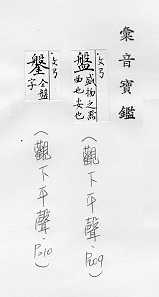 彙音寶鑑
盤
盛物之器
曲也安也
(觀下平聲.P209)
鎜
仝盤
字
(觀下平聲.P210)